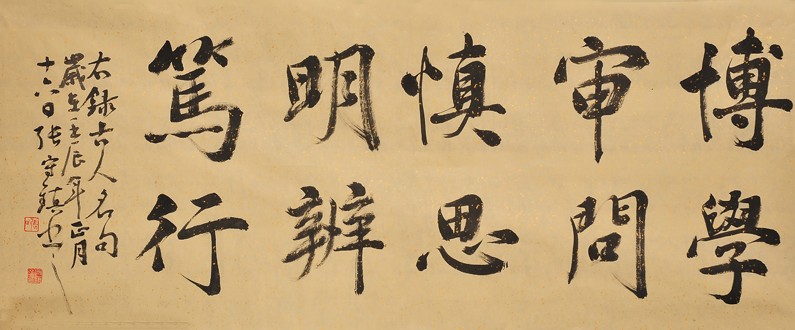 博學
审問
慎思
明辨
篤行
右録古人名句
歲在壬辰年正月
十六日張守鎮書